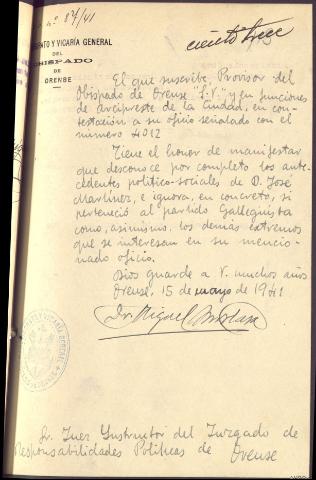 nº 84/41
ciento trece
ENTO Y VICARÍA GENERAL
DEL
OBISPADO
DE
ORENSE
El que suscribe, Provisor del
Obispado de Orense "S.V." y en funciones
de arcipreste de la Ciudad, en con-
testación a su oficio señalado con el
número 4012
Tiene el honor de manifestar
que desconoce por completo los ante-
cedentes politico-sociales de D. José
Martínez, e ignora, en concreto, si
perteneció al partido Galleguista
como, asimismo, los demás extremos
que se interesan en su mencio-
nado oficio.
Dios guarde a V. muchos años
Orense, 15 de mayo de 1941
Dr. Miguel
Sr. Juez Instructor del Juzgado de
Responsabilidades Políticas de Orense